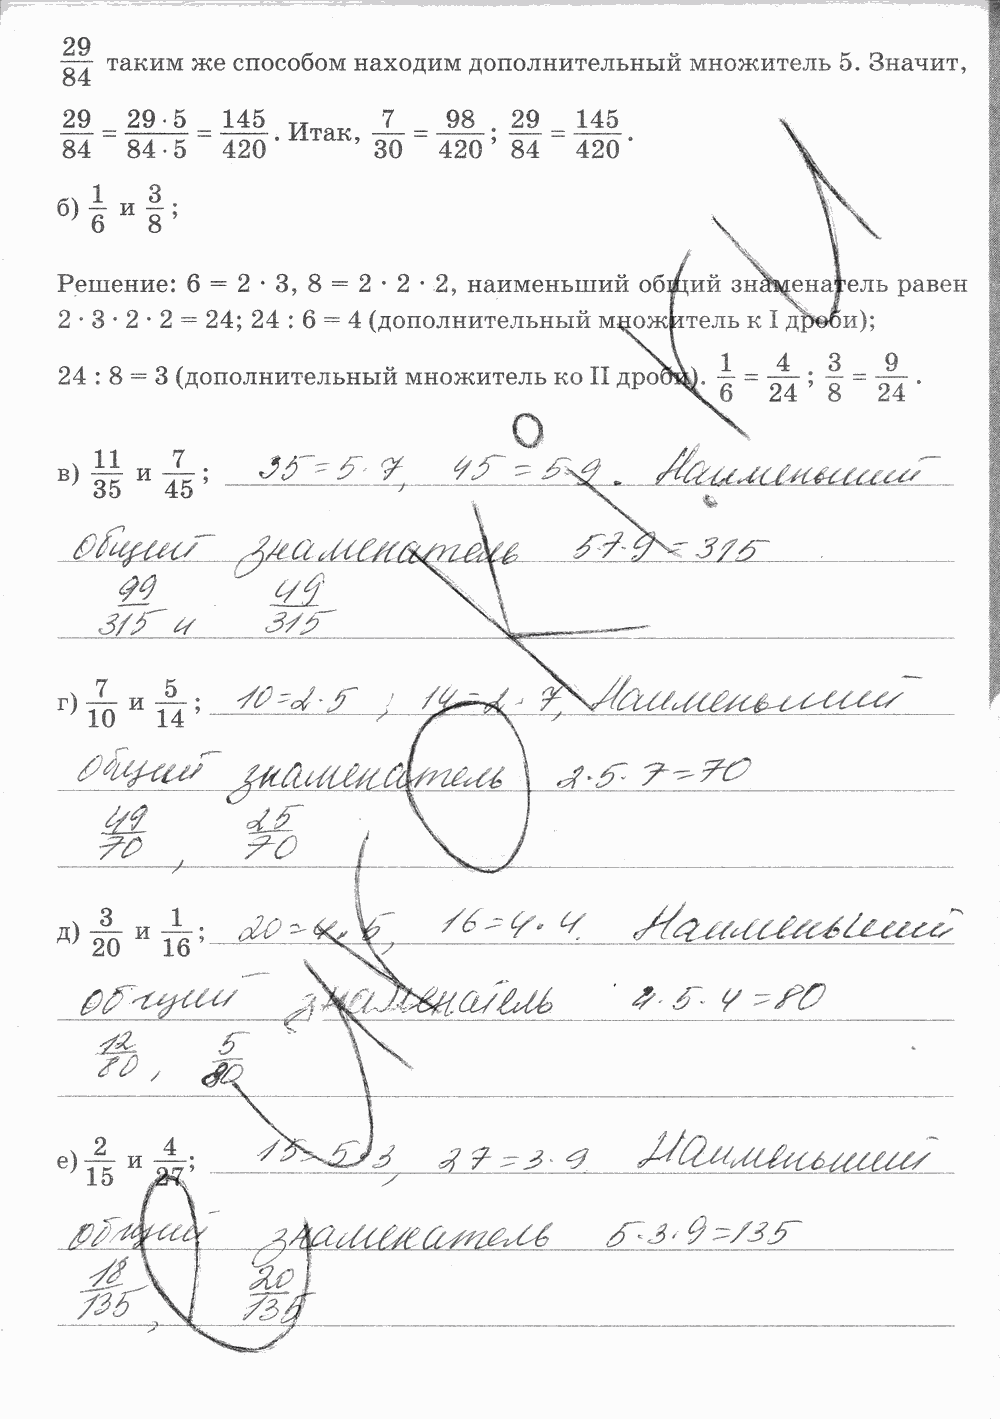 29/84 таким же способом находим дополнительный множитель 5. Значит,
29/84 = 29 · 5/84 · 5 = 145/420. Итак, 7/30 = 98/420; 29/84 = 145/420.
б) 1/6 и 3/8;
Решение: 6 = 2 · 3, 8 = 2 · 2 · 2, наименьший общий знаменатель равен
2 · 3 · 2 · 2 = 24; 24 : 6 = 4 (дополнительный множитель к I дроби);
24 : 8 = 3 (дополнительный множитель ко II дроби). 1/6 = 4/24; 3/8 = 9/24.
в) 11/35 и 7/45; 35 = 5 · 7, 45 = 5 · 9. Наименьший
общий знаменатель 5·7·9 = 315
99/315 и 49/315
г) 7/10 и 5/14; 10=2·5 ; 14=2·7, Наименьший
общий знаменатель 2·5·7=70
49/70, 25/70
д) 3/20 и 1/16; 20=4·5, 16=4·4. Наименьший
общий знаменатель 4·5·4=80
12/80, 5/80
е) 2/15 и 4/27; 15=5·3, 27=3·9 Наименьший
общий знаменатель 5·3·9=135
18/135, 20/135